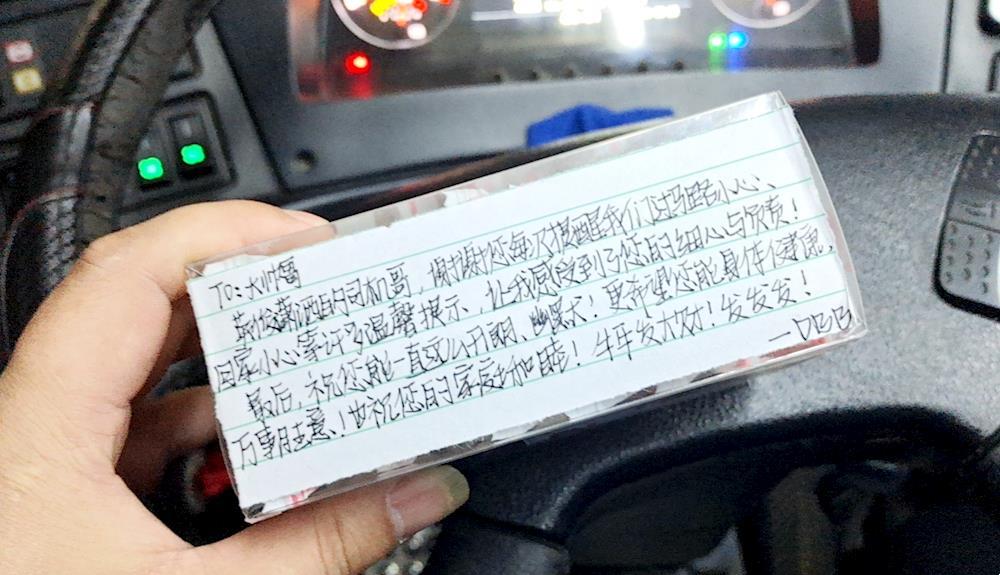 To: 大帅锅
敬爱潇洒的司机哥，谢谢您每次提醒我们过马路小心、
回家小心等许多温馨提示，让我感受到了您的细心与负责！
最后，祝您能一直这么开朗、幽默大！更希望您能身体健康，
万事胜意！也祝您的家庭越加和睦！牛年发大财！发发发！